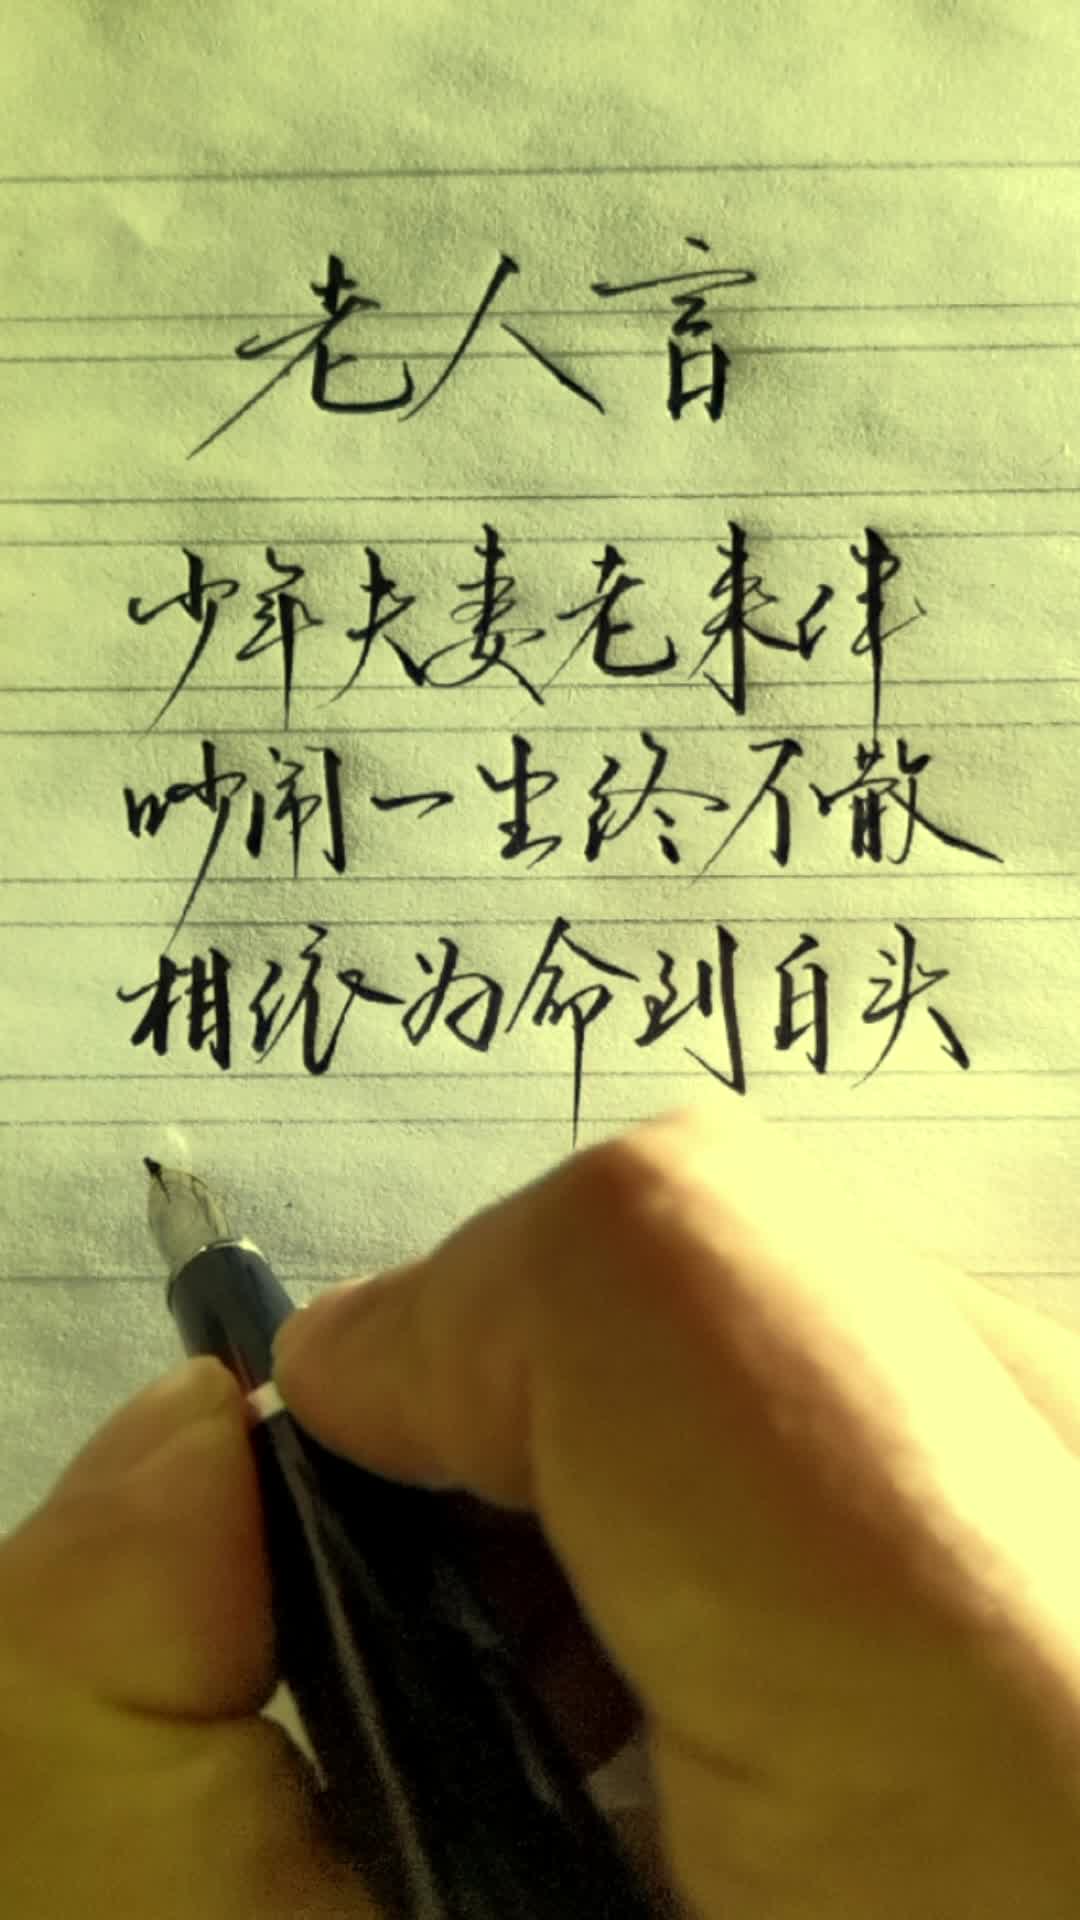 老人言
少年夫妻老来伴
吵闹一生终不散
相依为命到白头